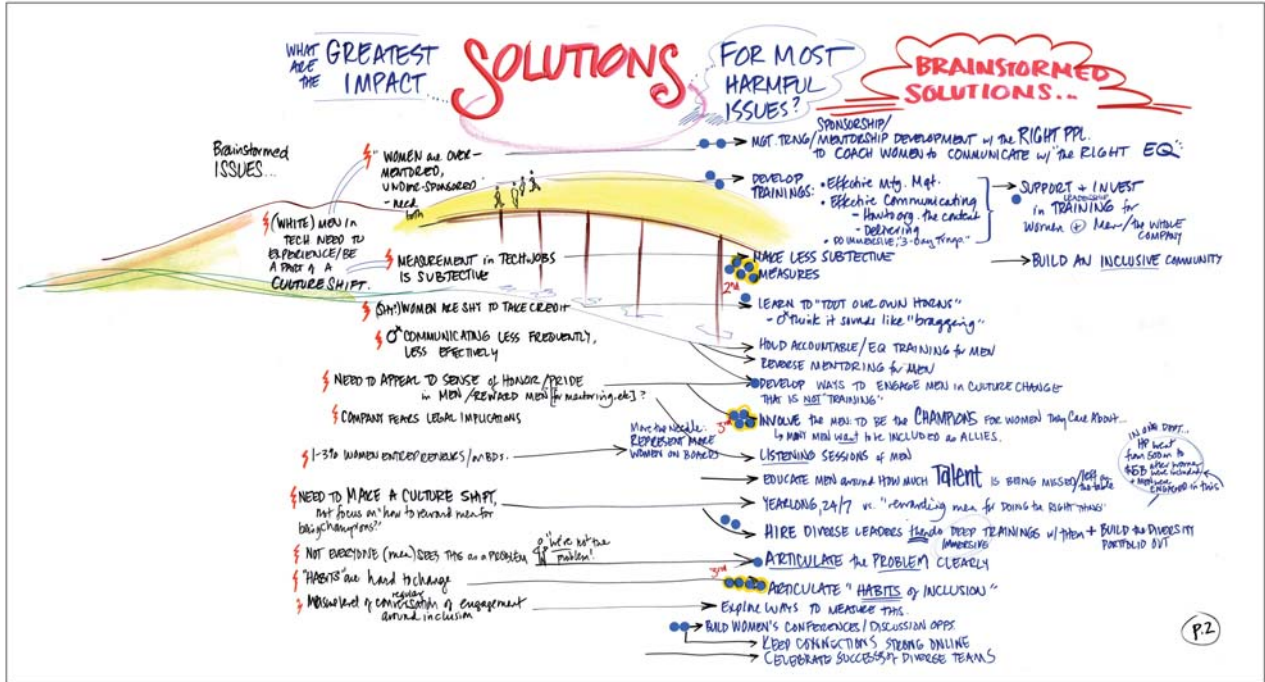 WHAT ARE THE GREATEST IMPACT...
SOLUTIONS
FOR MOST HARMFUL ISSUES?
BRAINSTORMED
SOLUTIONS...
Brainstormed
ISSUES...
"WOMEN are OVER-
MENTORED,
UNDER-SPONSORED"
- need
both
(WHITE) MEN in
TECH NEED to
EXPERIENCE/BE
A PART of A
CULTURE SHIFT.
MEASUREMENT in TECH JOBS
IS SUBTECTIVE
WOMEN ARE SHY TO TAKE CREDIT
♂ COMMUNICATING LESS FREQUENTLY,
LESS EFFECTIVELY
NEED TO APPEAL TO SENSE of HONOR/PRIDE
in MEN/REWARD MEN [for mentoring, etc.]?
COMPANY FEARS LEGAL IMPLICATIONS
1-3% WOMEN ENTREPRENEURS/on BDs.
Move the Needle:
REPRESENT MORE
WOMEN ON BOARDS
NEED to MAKE A CULTURE SHIFT,
not focus on "how to reward men for
being champions?"
NOT EVERYONE (men) SEES THIS as a PROBLEM
"We're not the
problem!"
"HABITS" are hard to change
regular
Measure level of conversation of engagement
around inclusion
SPONSORSHIP/
MGT. TRNG/MENTORSHIP DEVELOPMENT w/ the RIGHT PPL.
to COACH WOMEN to COMMUNICATE w/ "the RIGHT EQ"
DEVELOP
TRAININGS:
• Effective Mtg. Mgt.
• Effective Communicating
- How to org. the content
- Delivering
• DO IMMERSIVE, "3-day Trngs."
SUPPORT + INVEST
LEADERSHIP
in TRAINING for
Women + Men/the WHOLE
COMPANY
BUILD AN INCLUSIVE COMMUNITY
2nd
MAKE LESS SUBTECTIVE
MEASURES
LEARN TO "TOOT OUR OWN HORNS"
- ♂ think it sounds like "bragging"
HOLD ACCOUNTABLE/EQ TRAINING for MEN
REVERSE MENTORING for MEN
DEVELOP WAYS TO ENGAGE MEN in CULTURE CHANGE
THAT IS NOT "TRAINING"
3rd
INVOLVE the MEN: TO BE the CHAMPIONS FOR WOMEN They Care About...
↳ MANY MEN want to be INCLUDED as ALLIES.
LISTENING SESSIONS of MEN
EDUCATE MEN around HOW MUCH Talent IS BEING MISSED/left on the table
IN ONE DEPT...
HP went
from 500m to
$5B after women
were included
+ Men were
ENGAGED in this
YEARLONG, 24/7 vs. "rewarding men for DOING the RIGHT THING"
HIRE DIVERSE LEADERS then do DEEP TRAININGS w/ them + BUILD the DIVERSITY
IMMERSIVE
PORTFOLIO OUT
ARTICULATE the PROBLEM CLEARLY
3rd
ARTICULATE "HABITS of INCLUSION"
EXPLORE WAYS TO MEASURE THIS.
BUILD WOMEN'S CONFERENCES/DISCUSSION OPPS.
KEEP CONNECTIONS STRONG ONLINE
CELEBRATE SUCCESS of DIVERSE TEAMS
P.2